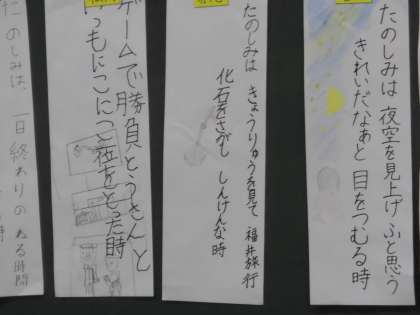 たのしみは 夜空を見上げ ふと思う
きれいだなぁと 目をつむる時
たのしみは きょうりゅうを見て 福井旅行
化石をさがし しんけんな時
ゲームで勝負 とうさんと
一位をとった時
たのしみは、一日終わりの ねる時間